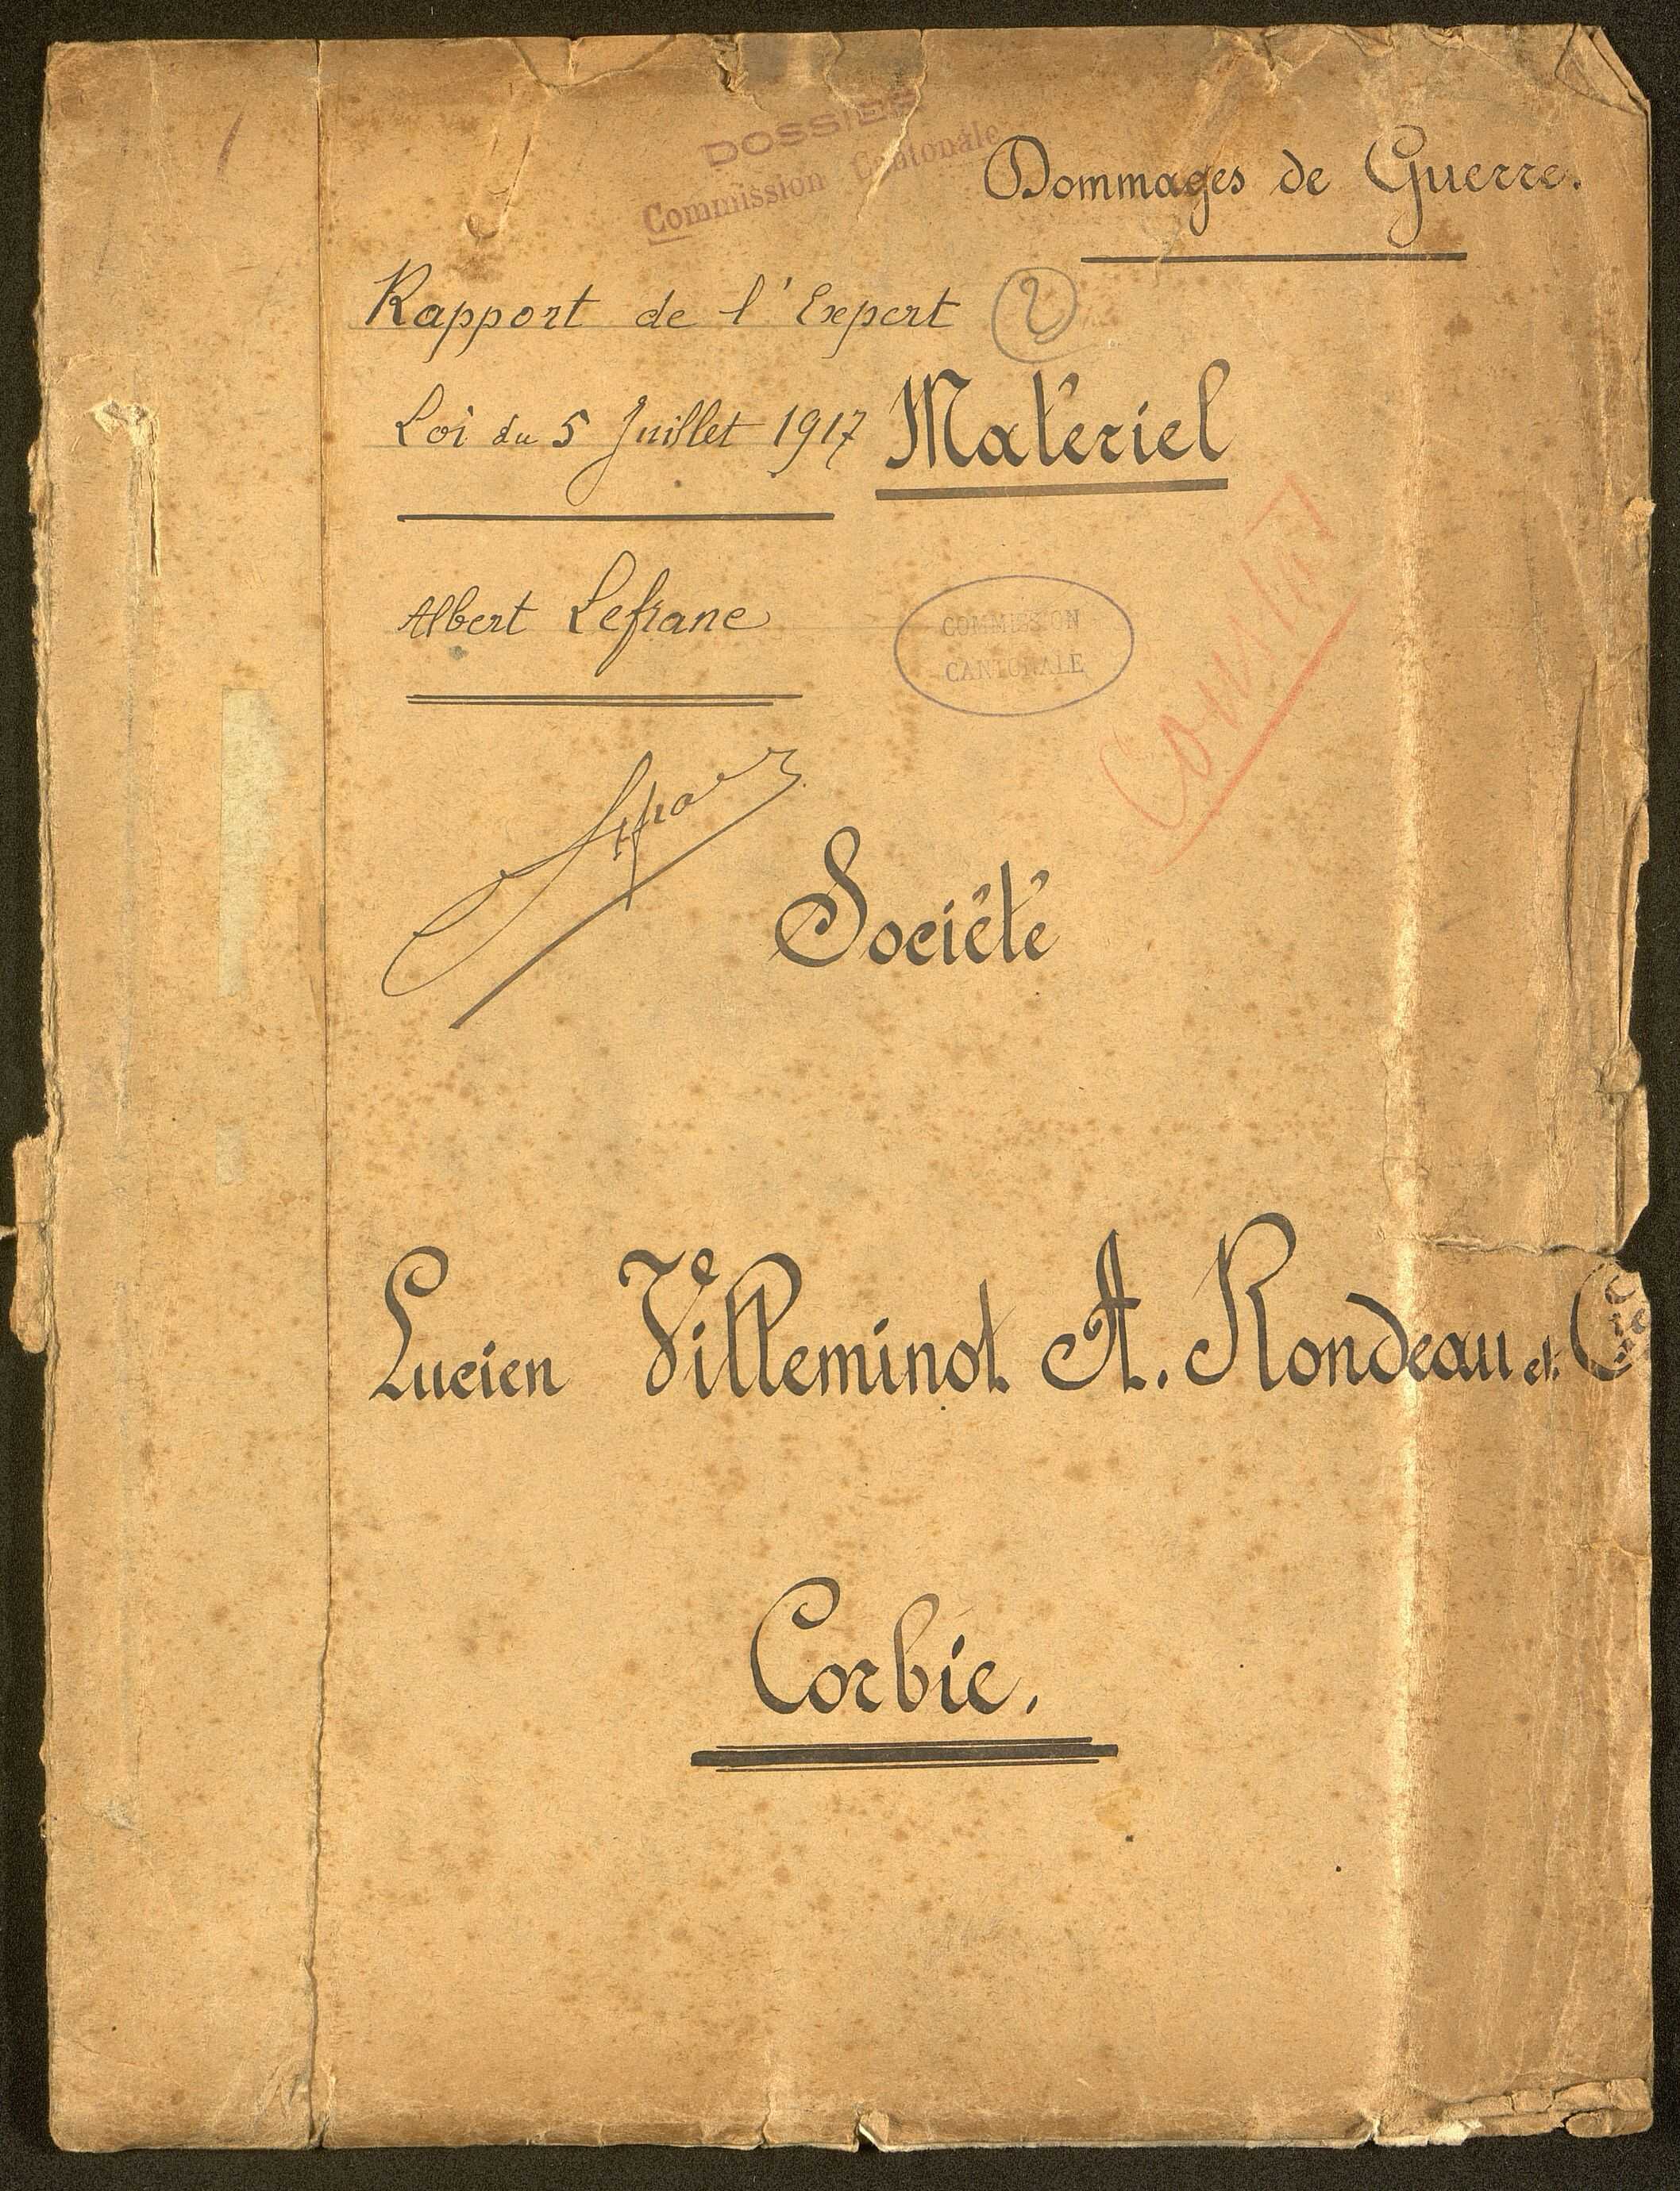 DOSSIER
Commission Cantonale
Dommages de Guerre.
Rapport de l'Expert 2
Loi du 5 Juillet 1917 Matériel
Albert Lefranc
COMMISSION
CANTONALE
Constat
Société
Lucien Villeminot A. Rondeau et
Corbie.